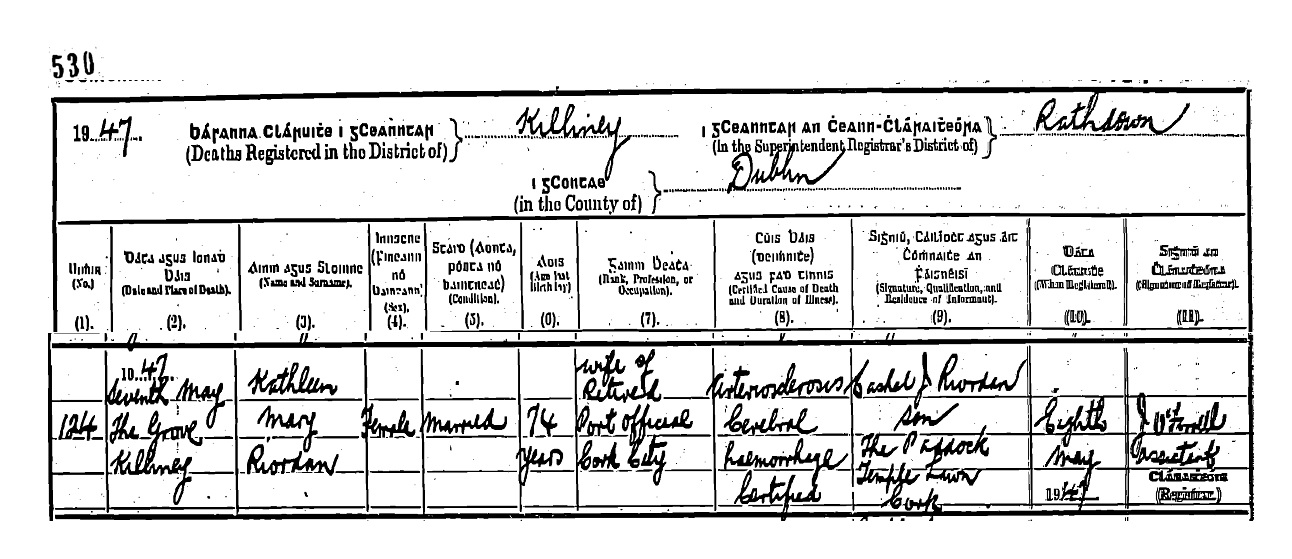 530
1947
Báranna Cláruiṫe i gCeanntar
(Deaths Registered in the District of)
Killiney
i gCeanntar an Ċeann-Ċláraiṫeóra
(in the Superintendent Registrar's District of)
Rathdown
i gContae
(in the County of)
Dublin
Uimhir
(No.)
(1).
Dáta agus Ionad
Báis
(Date and Place of Death).
(2).
Ainm agus Sloinne
(Name and Surname).
(3).
Innscne
(Fireann
nó
Baineann)
(Sex).
(4).
Staid (Aonta,
pósta nó
baintreaċ)
(Condition).
(5).
Aois
(Age last
Birthday)
(6).
Gairm Beaṫa
(Rank, Profession, or
Occupation).
(7).
Cúis Báis
(Deiṁniṫe)
agus fad tinnis
(Certified Cause of Death
and Duration of Illness).
(8).
Síġniú, Cáiliḋeċt agus áit
Ċóṁnaiṫe an
Ḟáisnéisí
(Signature, Qualification, and
Residence of Informant).
(9).
Dáta
Cláruiṫe
(When Registered).
(10).
Síġniú an
Ċláraiṫeóra
(Signature of Registrar).
(11).
124
1947
Seventh May
The Grove
Killiney
Kathleen
Mary
Riordan
Female
Married
74
years
wife of
Retired
Port official
Cork City
Arteriosclerosis
Cerebral
haemorrhage
Certified
Cashel J Riordan
son
The Paddock
Temple Lawn
Cork
Eighth
May
1947
J
assistant
Cláraiṫeóir
(Registrar.)